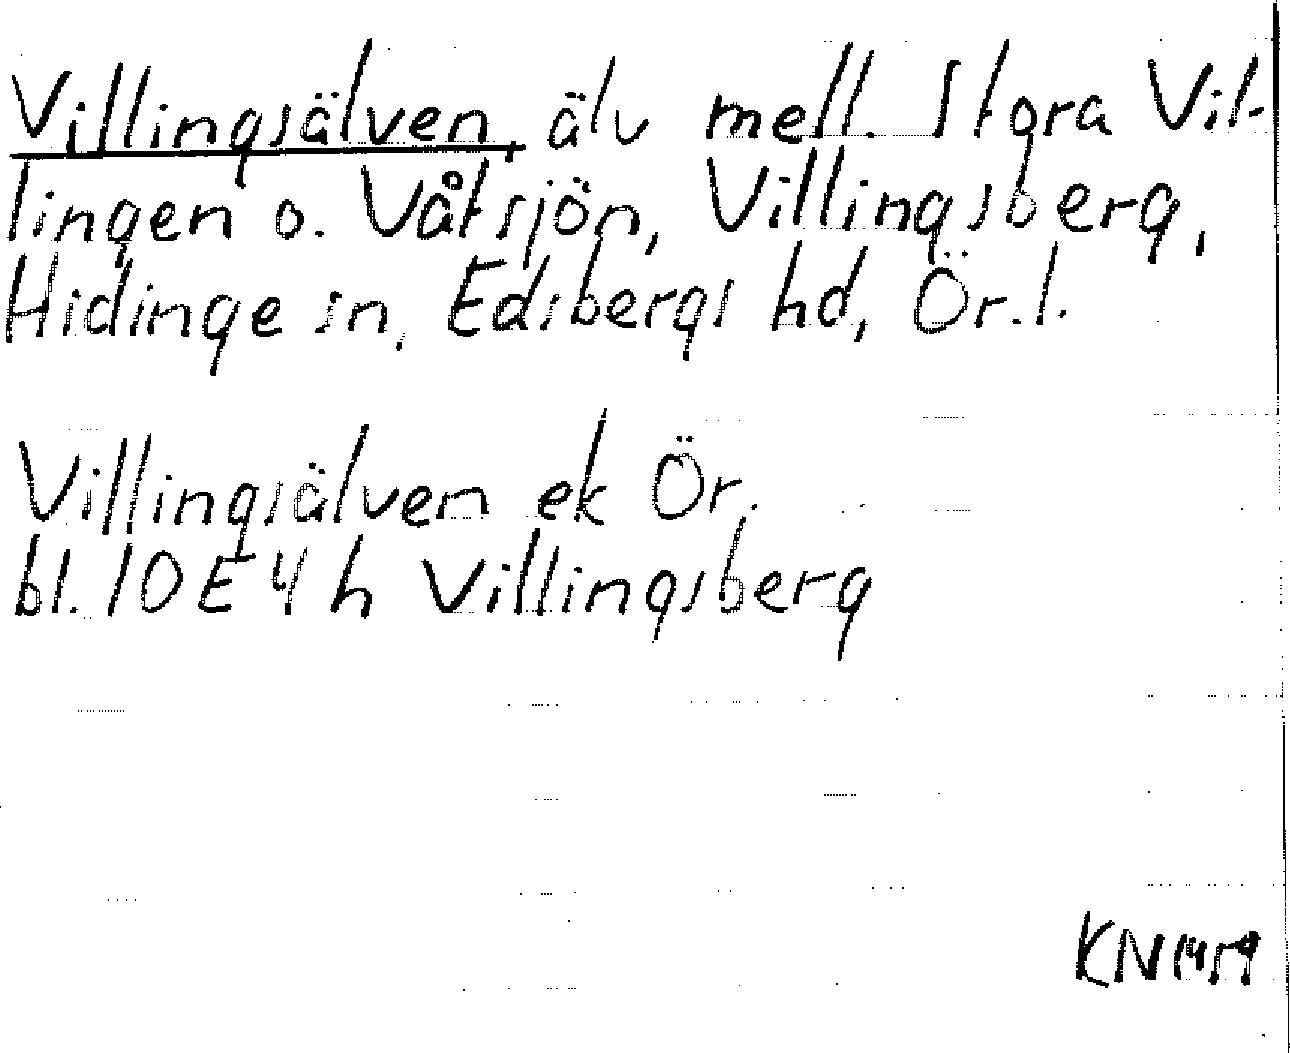 Villingsälven, älv mell. Stora Vil-
lingen o. Våtsjön, Villingsberg,
Hidinge sn, Edsbergs hd, Ör. l.
Villingsälven ek Ör.
bl. 10E4h Villingsberg